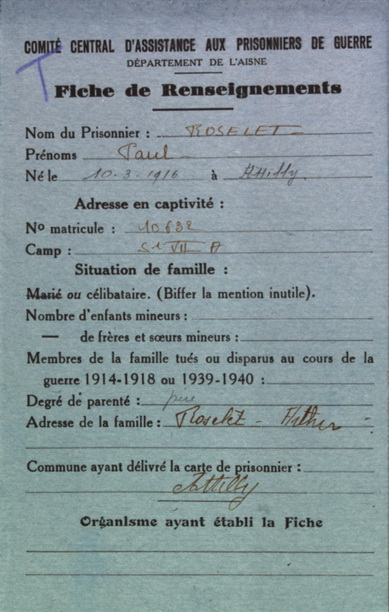 COMITÉ CENTRAL D'ASSISTANCE AUX PRISONNIERS DE GUERRE
DÉPARTEMENT DE L'AISNE
T
Fiche de Renseignements
Nom du Prisonnier : ROSELET
Prénoms Paul
Né le 10-3-1916 à Attilly
Adresse en captivité :
No matricule : 10632
Camp : St VII A
Situation de famille :
Marié ou célibataire. (Biffer la mention inutile).
Nombre d'enfants mineurs :
— de frères et sœurs mineurs :
Membres de la famille tués ou disparus au cours de la
guerre 1914-1918 ou 1939-1940 :
Degré de parenté : père
Adresse de la famille : Roselet - Arthur
Commune ayant délivré la carte de prisonnier :
Attilly
Organisme ayant établi la Fiche